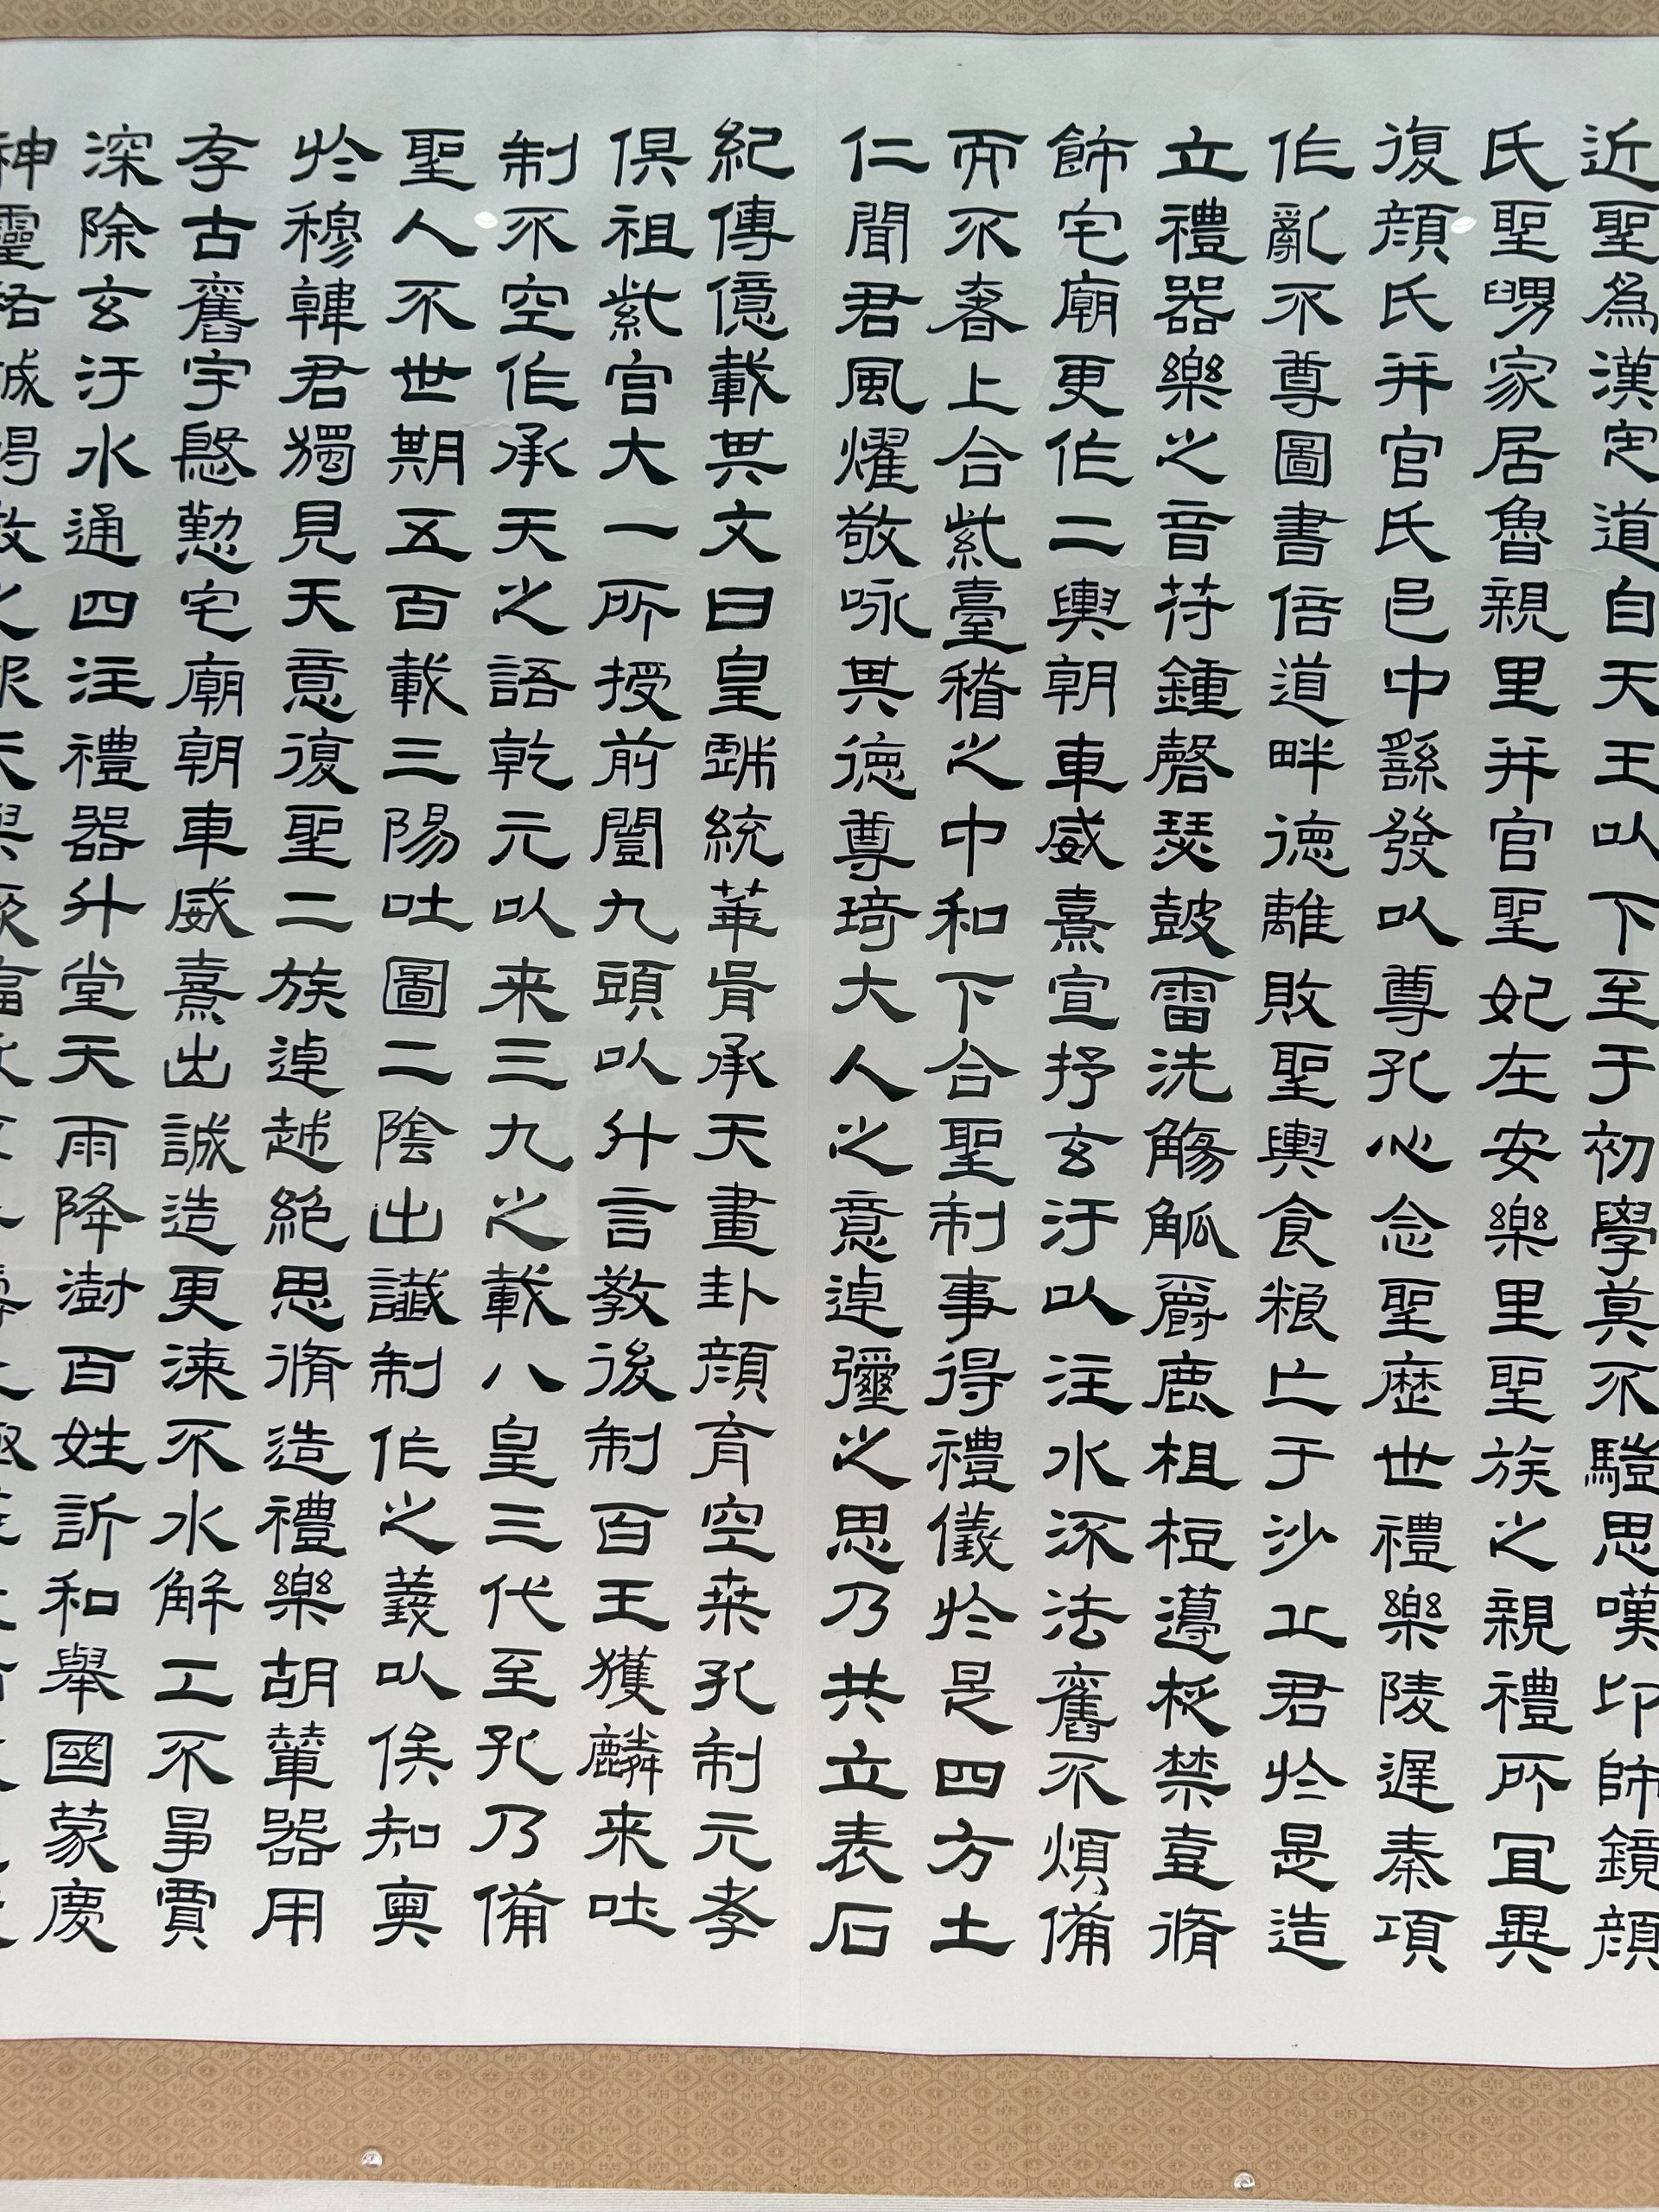 近聖為漢定道自天王以下至于初學莫不驥思嘆卬師鏡顏
氏聖舅家居魯親里并官聖妃在安樂里聖族之親禮所宜異
復顏氏并官氏邑中繇發以尊孔心念聖歷世禮樂陵遲秦項
作亂不尊圖書倍道畔德離敗聖輿食粮亡于沙丘君於是造
立禮器樂之音苻鍾磬瑟鼓雷洗觴觚爵鹿柤梪籩柉禁壺脩
飾宅廟更作二輿朝車威熹宣抒玄汙以注水流法舊不煩備
而不奢上合紫臺稽之中和下合聖制事得禮儀於是四方土
仁聞君風燿敬咏其德尊琦大人之意逴彌之思乃共立表石
紀傳億載其文曰皇戲統華胥承天畫卦顏育空桑孔制元孝
俱祖紫宮大一所授前闓九頭以升言教後制百王獲麟来吐
制不空作承天之語乾元以来三九之載八皇三代至孔乃備
聖人不世期五百載三陽吐圖二陰出讖制作之義以俟知奧
於穆韓君獨見天意復聖二族逴越絕思脩造禮樂胡輦器用
存古舊宇慇懃宅廟朝車威熹出誠造更漆不水解工不爭賈
深除玄汙水通四注禮器升堂天雨降澍百姓訢和舉國蒙慶
神靈祐誠竭敬之報天與厥福